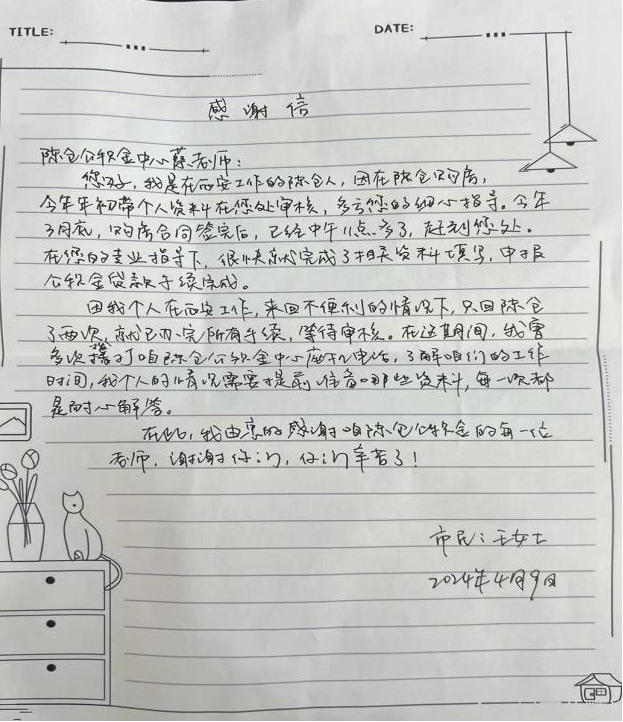 TITLE:
DATE:
感谢信
陈仓公积金中心蔡老师：
您好，我是在西安工作的陈仓人，因在陈仓购房，
今年年初带个人资料在您处审核，多亏您的细心指导。今年
3月底，购房合同签完后，已经中午11点多了，赶到您处。
在您的专业指导下，很快就完成了相关资料填写，申报
公积金贷款手续完成。
因我个人在西安工作，来回不便利的情况下，只回陈仓
了两次，就已办完所有手续，等待审核。在这期间，我曾
多次拨打咱陈仓公积金中心座机电话，了解咱们的工作
时间，我个人的情况需要提前准备哪些资料，每一次都
是耐心解答。
在此，我由衷的感谢咱陈仓公积金的每一位
老师，谢谢你们，你们辛苦了！
市民：王女士
2024年4月9日